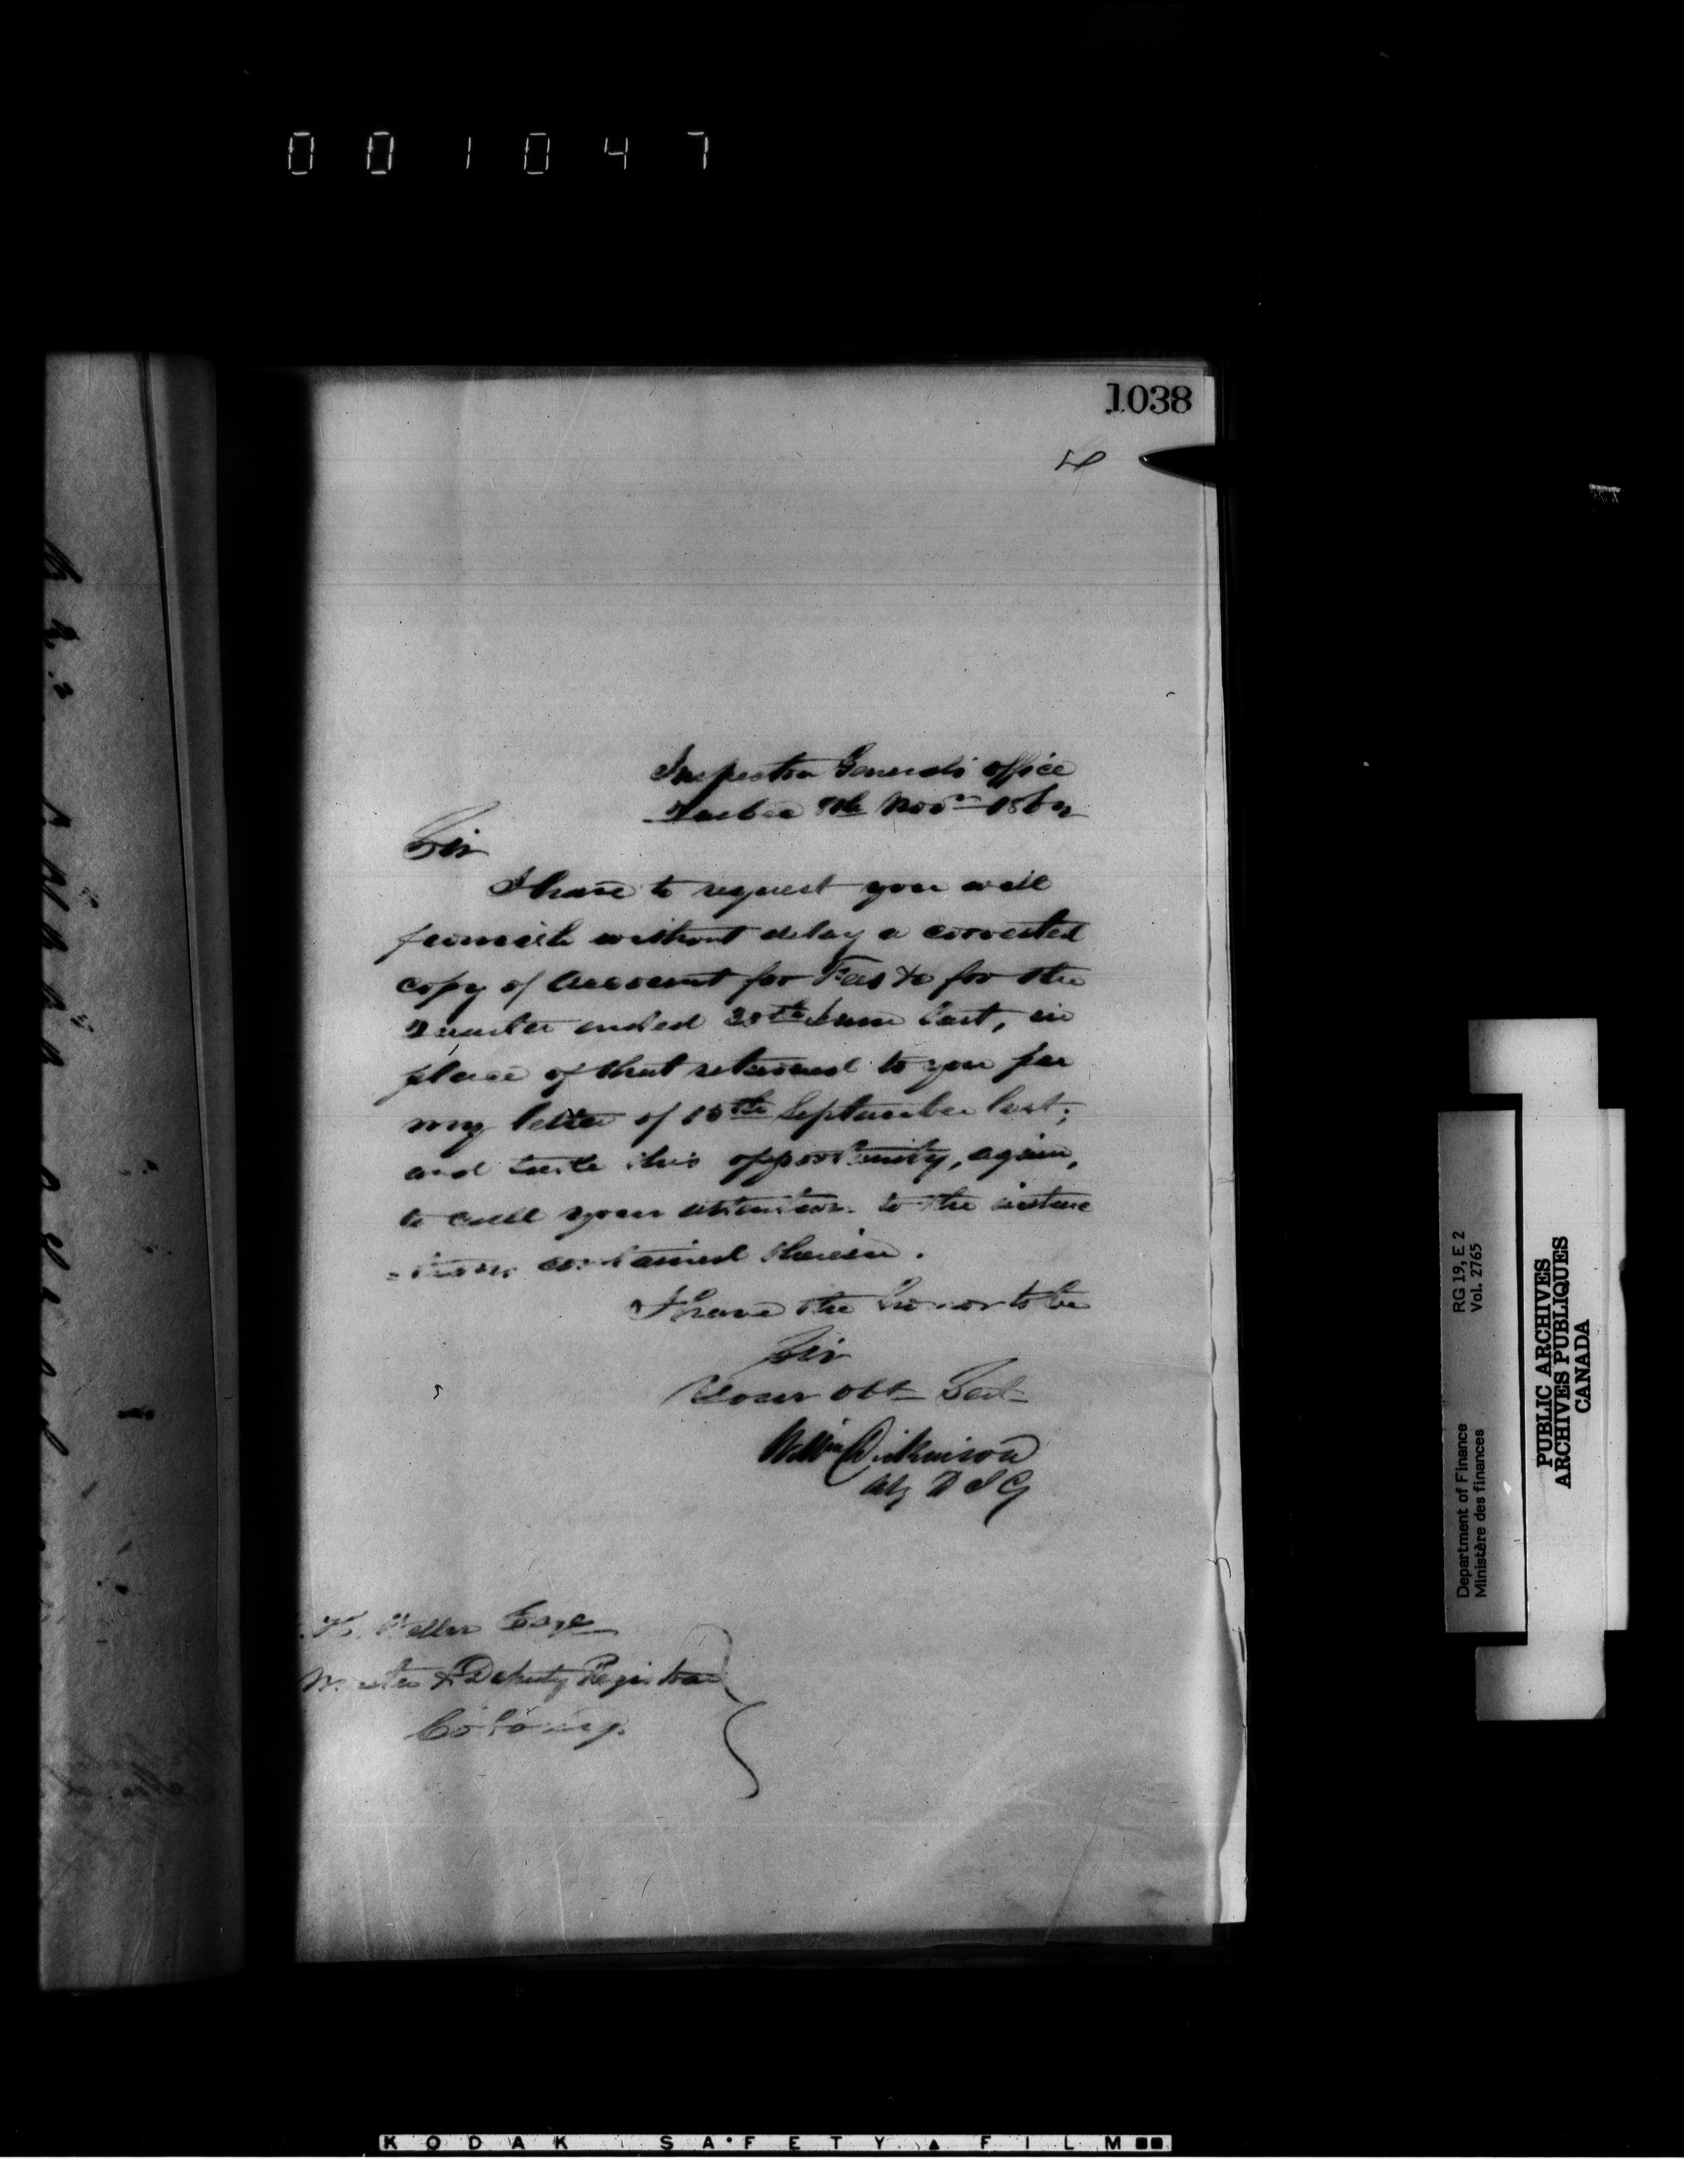 001047
1038
Inspector General's Office
Quebec 8th Novr 1862
Sir
I have to request you will
furnish without delay a corrected
copy of Account for Fees &c for the
Quarter ended 30th June last, in
place of that returned to you per
my letter of 15th September last;
and take this opportunity, again,
to call your attention to the instruc
-tions contained therein.
I have the honor to be
Sir
Your Obt Sert
Wm Dickinson
Actg D I G
Weller Esqr
Master & Deputy Registrar
Cobourg.
Department of Finance RG 19, E 2
Ministère des finances Vol. 2765
PUBLIC ARCHIVES
ARCHIVES PUBLIQUES
CANADA
KODAK SAFETY FILM